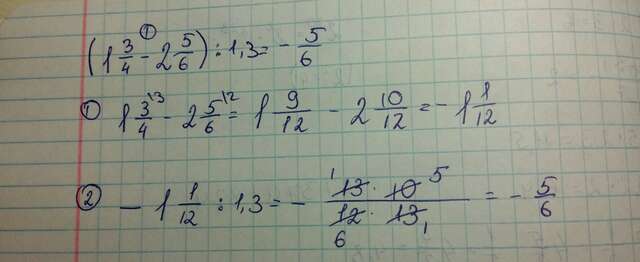 (1 3/4 - 2 5/6) ① : 1,3 = - 5/6
① 1 3/4 \3 - 2 5/6 \2 = 1 9/12 - 2 10/12 = - 1 1/12
② - 1 1/12 : 1,3 = - (13 1 · 10 5)/(12 6 · 13 1) = - 5/6